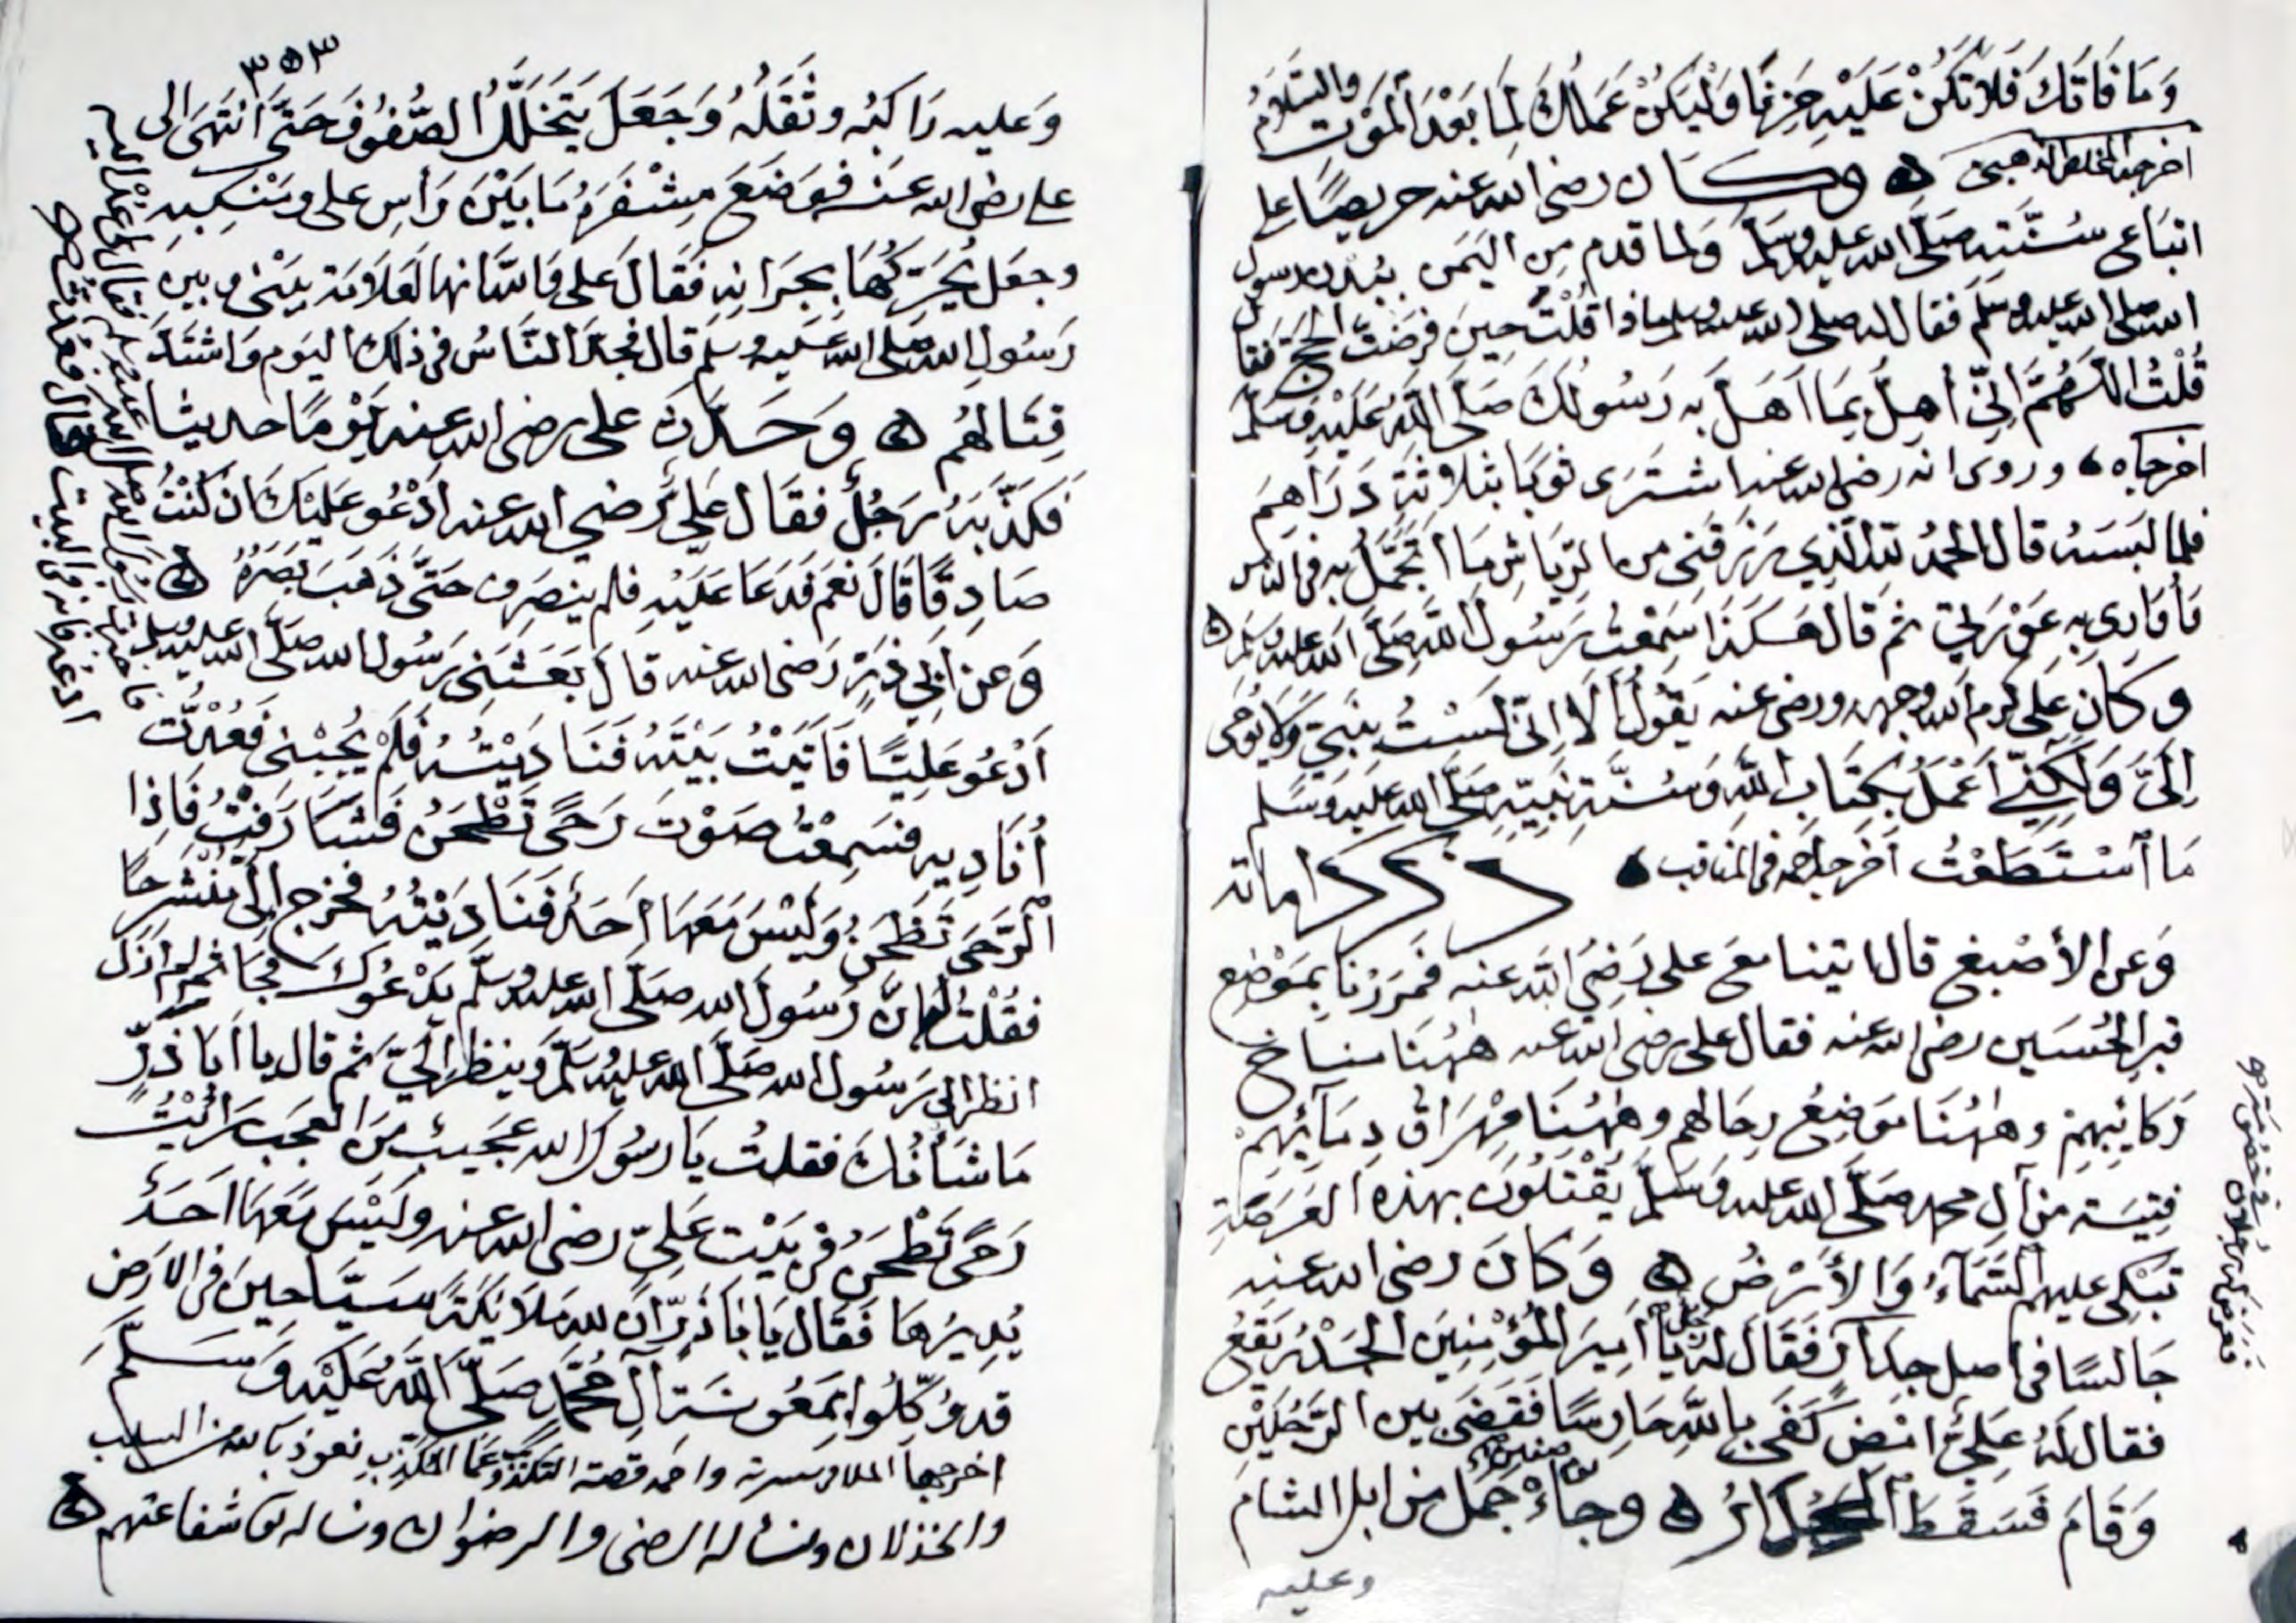 وَمَا فَاتَكَ فَلَا تَكُنْ عَلَيْهِ حَزِنًا وَلْيَكُنْ عَمَلُكَ لِمَا بَعْدَ الْمَوْتِ والسَّلَامُ
اخرجه المخلص الذهبى وكان رضى الله عنه حريصًا على
اتباع سُنَّتِه صَلَّى الله عليه وسَلَّم ولما قدم من اليَمَن بِبُدن رسول
الله صلى الله عليه وسَلَّم فقال له صلى الله عليه وسلم ماذا قُلْتَ حِينَ فَرَضْتَ الحَجَّ فقال
قُلْتُ اللَّهُمَّ اِنِّى أُهِلُّ بِمَا اَهَلَّ بِه رَسُولُكَ صَلَّى اللَّهُ عَلَيْهِ وَسَلَّم
اخرجاه وروى انه رضى الله عنه اشتَرَى ثوبًا بثلاثَةِ دَرَاهِمَ
فلما لبسَه قال الحمدُ لله الَّذِي رَزَقَنِى من الرِّيَاشِ مَا أَتَجَمَّلُ به فى الناس
وَأُوَارِى بِهِ عَوْرَتِي ثم قَالَ هَكَذَا سَمِعْتُ رَسُولَ اللَّهِ صَلَّى الله عليه وسَلَّم
وكَانَ عَلِى كرم الله وجهه ورضى عنه يَقُولُ أَلَا اِنِّى لَسْتُ بِنَبِىّ وَلَا يُوحَى
اِلَىَّ وَلَكِنِّي أَعْمَلُ بِكِتَابِ اللَّهِ وَسُنَّةِ نَبِيِّهِ صَلَّى الله عليه وَسَلم
مَا اسْتَطَعْتُ اخرجه احمد فى المناقب ذكر كراماته
وَعن الأصْبغ قال اتينا مع على رَضِيَ الله عنه فَمَرَرْنَا بِمَوْضِع
قبر الحُسَين رضى الله عنه فقال على رضى الله عنه هٰهُنَا مناخ
رَكَائِبِهِمْ وهٰهُنَا مَوْضِعُ رِحَالهم وهٰهُنَا مِهْرَاق دِمَآئِهِمْ
فِتْيَة من آلِ محمد صَلَّى الله عليه وَسَلَّم يُقْتَلُونَ بهذه العَرَصَةِ
تَبْكِى عليهم السَّمَآءُ وَالأَرْضُ وَكَانَ رضى الله عنه
جَالسًا فى أصل جِدَارٍ فَقَالَ له رجل يَا أَمِيرَ المُؤْمِنِينَ الجَدْرُ يَقَعُ
فقال لَهُ عَلِىٌّ امْضِ كَفَى بِاللَّهِ حَارِسًا فَقَضَى بين الرَّجُلَيْنِ
وَقَامَ فَسَقَطَ الجِدَارُ وجَاءَ جَمَل من ابل الشام
وعليه
فعرض له رجلان فى خصومة
٣٥٣
وَعليه رَاكبُه وثَقَلُه وَجَعَلَ يَتَخَلَّلُ الصُّفُوفَ حَتَّى انْتَهَى الى
على رضى الله عنه فوَضَعَ مِشْفَرَهُ مَا بَيْنَ رَأسِ على ومَنْكِبِه
وجعل يُحَرِّكُهَا بِجِرَانِهِ فَقَالَ على وَاللَّهِ انها لَعَلَامَة بَيْنى وبين
رَسُولِ الله صَلى الله عليه وسلم قال فجَدَّ النَّاسُ فى ذلك اليوم وَاشتَدَّ
قِتَالهُم وَحَدَّثَ على رضى الله عنه يَوْمًا حديثا
فَكَذَّبَهُ رَجُلٌ فقَال عَلِىّ رَضي الله عنه ادْعُو عَلَيْكَ ان كُنْتُ
صَادِقًا قَالَ نَعَم فَدَعَا عَلَيْهِ فلم ينصرف حَتَّى ذَهَبَ بَصَرُهُ
وَعن أَبِي ذَرّ رَضى الله عنه قال بَعَثَنِى رَسُول الله صَلَّى الله عليه وسلم
اَدْعُو عَلِيًّا فَأَتَيْتُ بَيْتَهُ فَنَادَيْتُهُ فَلَمْ يُجِبْنى فَعُدْتُ
أُنَادِيه فسَمِعْتُ صَوْتَ رَحًى تَطْحَنُ فَشَارَفْتُ فَاِذَا
الرَّحَى تَطْحَنُ وَلَيْسَ مَعَهَا اَحَدٌ فَنَادَيْتُهُ فخرج اِلَىَّ مُنْشَرِحًا
فقُلْتُ له اِنَّ رَسُولَ الله صَلَّى الله عليه وسَلَّم يَدْعُوكَ فجَا ثم لم اَزَل
انظر الى رَسُول الله صَلَّى الله عليه وسَلَّم وَينظر اِلَىَّ ثم قال يا اَبَا ذَرٍّ
مَا شَأْنُكَ فقلتُ يَا رسُولَ الله عجيب مِنَ العَجَب رَأَيْتُ
رَحًى تَطْحَنُ فى بَيْت عَلِىّ رضى الله عنه وَلَيْسَ مَعَهَا اَحَدٌ
يُدِيرُهَا فَقَال يَا اَبَا ذَرّ اِنَّ لله مَلَائكَةً سَيَّاحِينَ فى الارض
قد وُكِّلُوا بِمَعُونَةِ آلِ مُحَمَّد صَلَّى اللَّهُ عَلَيْه وَسَلَّمَ
اخرجها الملا فى سيرته واحمد قصة التكذيب نعوذ بالله من السلب
والخذلان ونساله الرضى والرضوان ونساله شفاعتهم
فاخبرت رسول الله صلى الله عليه وسلم فقال لى عُد اليه
ادعه فانه فى البيت قال فعدت